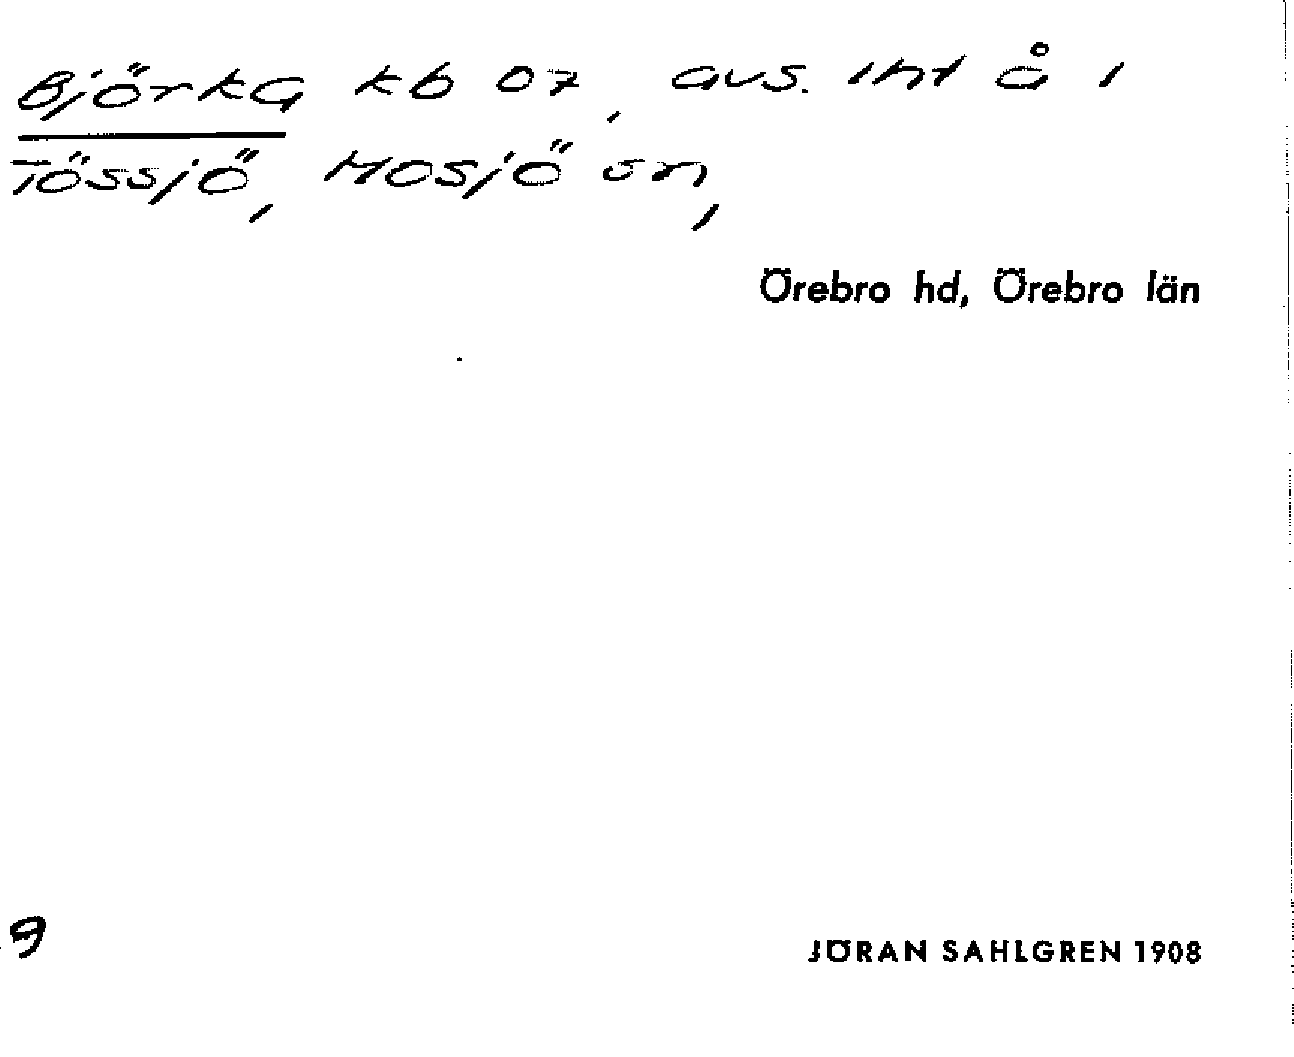 Björka kb 07, avs. int å i
Tössjö, Mosjö sn,
Örebro hd, Örebro län
9
JÖRAN SAHLGREN 1908